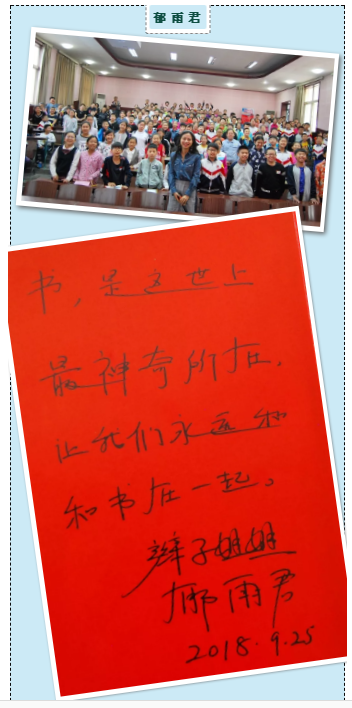 郁雨君
书，是这世上
最神奇所在，
让我们永远和
和书在一起。
辫子姐姐
郁雨君
2018.9.25